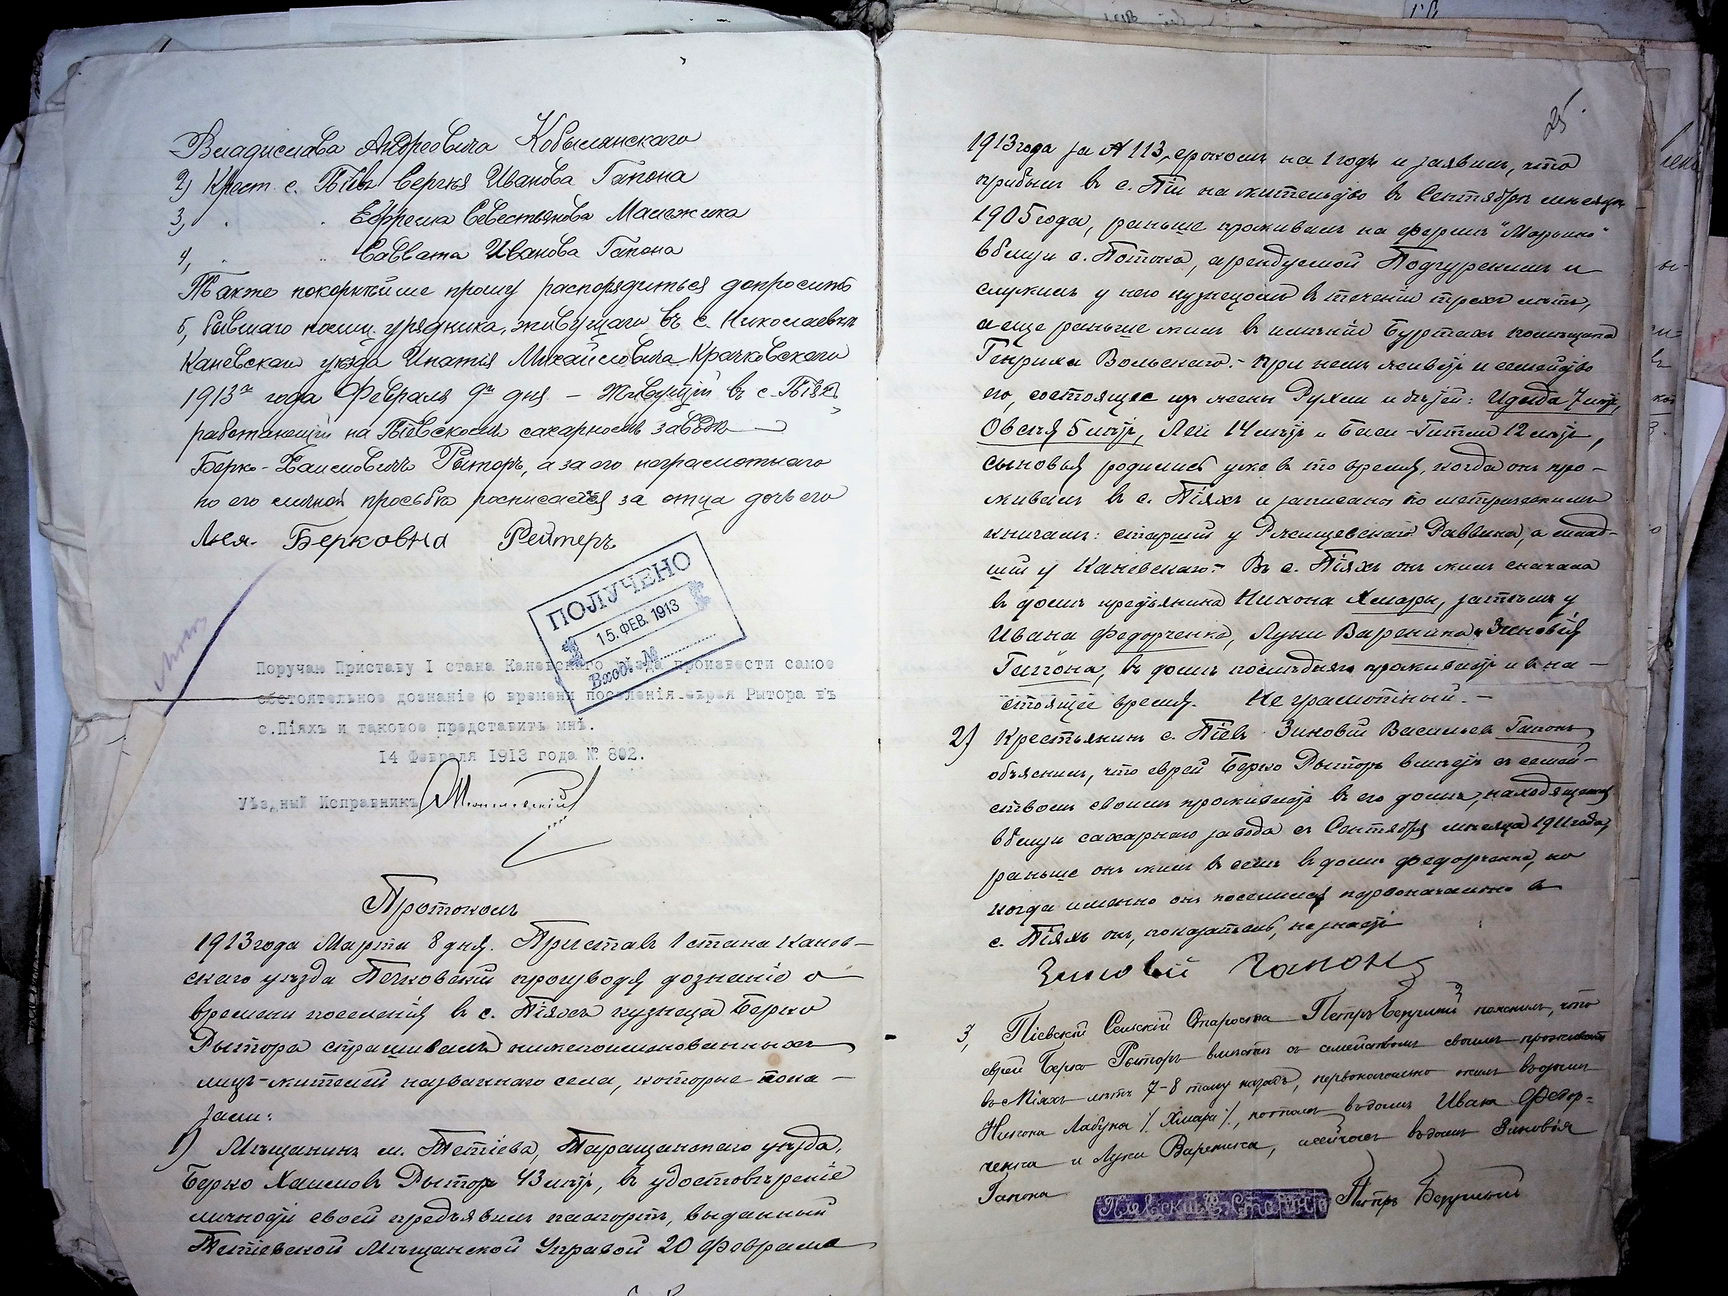 Владислава Андреевича Кобылянскаго
2) Крест. с. Пiевъ Сергѣя Иванова Гапона
3, " " Ефрема Севестьянова
4, " " Савката Иванова Гапона
Также покорнѣйше прошу распорядиться допросить
5, бывшаго урядника, живущаго въ с. Николаевкѣ
Каневскаго уѣзда Игнатiя Михайловича Крачковскаго
1913го года Февраля 9го дня – Живущiй въ с. Пiяхъ,
работающiй на Пiевскомъ сахарномъ заводѣ
Берко-Хаимовичъ Рыторъ, а за его неграмотнаго
по его личной просьбѣ росписается за отца дочь его
Лея Берковна Рейтеръ
ПОЛУЧЕНО
15. ФЕВ. 1913
Входi. №
Поручаю Приставу I стана Каневскаго уѣзда произвести самое
обстоятельное дознанiе о времени поселенiя еврея Рытора въ
с.Пiяхъ и таковое представить мнѣ.
14 Февраля 1913 года № 802.
Уѣздный Исправникъ
Протоколъ
1913 года Марта 8 дня. Приставъ 1 стана Канев-
скаго уѣзда Печковскiй производя дознанiе о
времени поселенiя въ с. Пiяхъ кузнеца Берко
Рытора спрашивалъ нижепоименованныхъ
лицъ-жителей названнаго села, которые пока-
зали:
1) Мѣщанинъ м. Тетiева, Таращанскаго уѣзда,
Берко Хаимовъ Рыторъ 43 лѣтъ, въ удостовѣренiе
личности своей предъявилъ паспортъ, выданный
Тетiевской Мѣщанской Управой 20 Февраля
25.
1913 года за № 113, срокомъ на 1 годъ и заявилъ, что
прибылъ въ с. Пiи на жительство въ Сентябрѣ мѣсяцѣ
1905 года, раньше проживалъ на фермѣ "Марьино"
вблизи с. Потока, арендуемой и
служилъ у него кузнецомъ въ теченiи трехъ лѣтъ,
а еще раньше жилъ въ имѣнiи Буртахъ помѣщика
Генриха Вольскаго.- При немъ живетъ и семейство
его, состоящее изъ жены Рухли и дѣтей: 7 лѣтъ,
Овсея 5 лѣтъ, Леи 14 лѣтъ и Баси-Гитли 12 лѣтъ,
сыновья родились уже въ то время, когда онъ про-
живалъ въ с. Пiяхъ и записаны по метрическимъ
книгамъ: старшiй у Ржищевскаго Раввина, а млад-
шiй у Каневскаго.- Въ с. Пiяхъ онъ жилъ сначала
въ домѣ крестьянина Никона Хмары, затѣмъ у
Ивана Федорченка, Луки Вареника и Зиновiя
Гапона, въ домѣ послѣдняго проживаетъ и въ на-
стоящее время. Не грамотный.-
2) Крестьянинъ с. Пiевъ Зиновiй Васильевъ Гапонъ
объяснилъ, что еврей Берко Рыторъ вмѣстѣ съ семей-
ствомъ своимъ проживаетъ въ его домѣ, находящемся
вблизи сахарнаго завода съ Сентября мѣсяца 1911 года,
раньше онъ жилъ въ селѣ въ домѣ Федорченка, но
когда именно онъ поселился первоначально въ
с. Пiяхъ онъ, показатель, не знаетъ
Зиновiй Гапонъ
3, Пiевскiй Сельскiй Староста Петръ пояснилъ, что
еврей Берко Рыторъ вмѣстѣ съ семействомъ своимъ проживаетъ
въ Пiяхъ лѣтъ 7-8 тому назадъ, первоначально жилъ въ домѣ
Никона Лабука /. Хмара /., потомъ въ домѣ Ивана Федор=
ченка и Луки Вареника, а сейчасъ въ домѣ Зиновiя
Гапона
Пiевскiй С. Староста Петръ